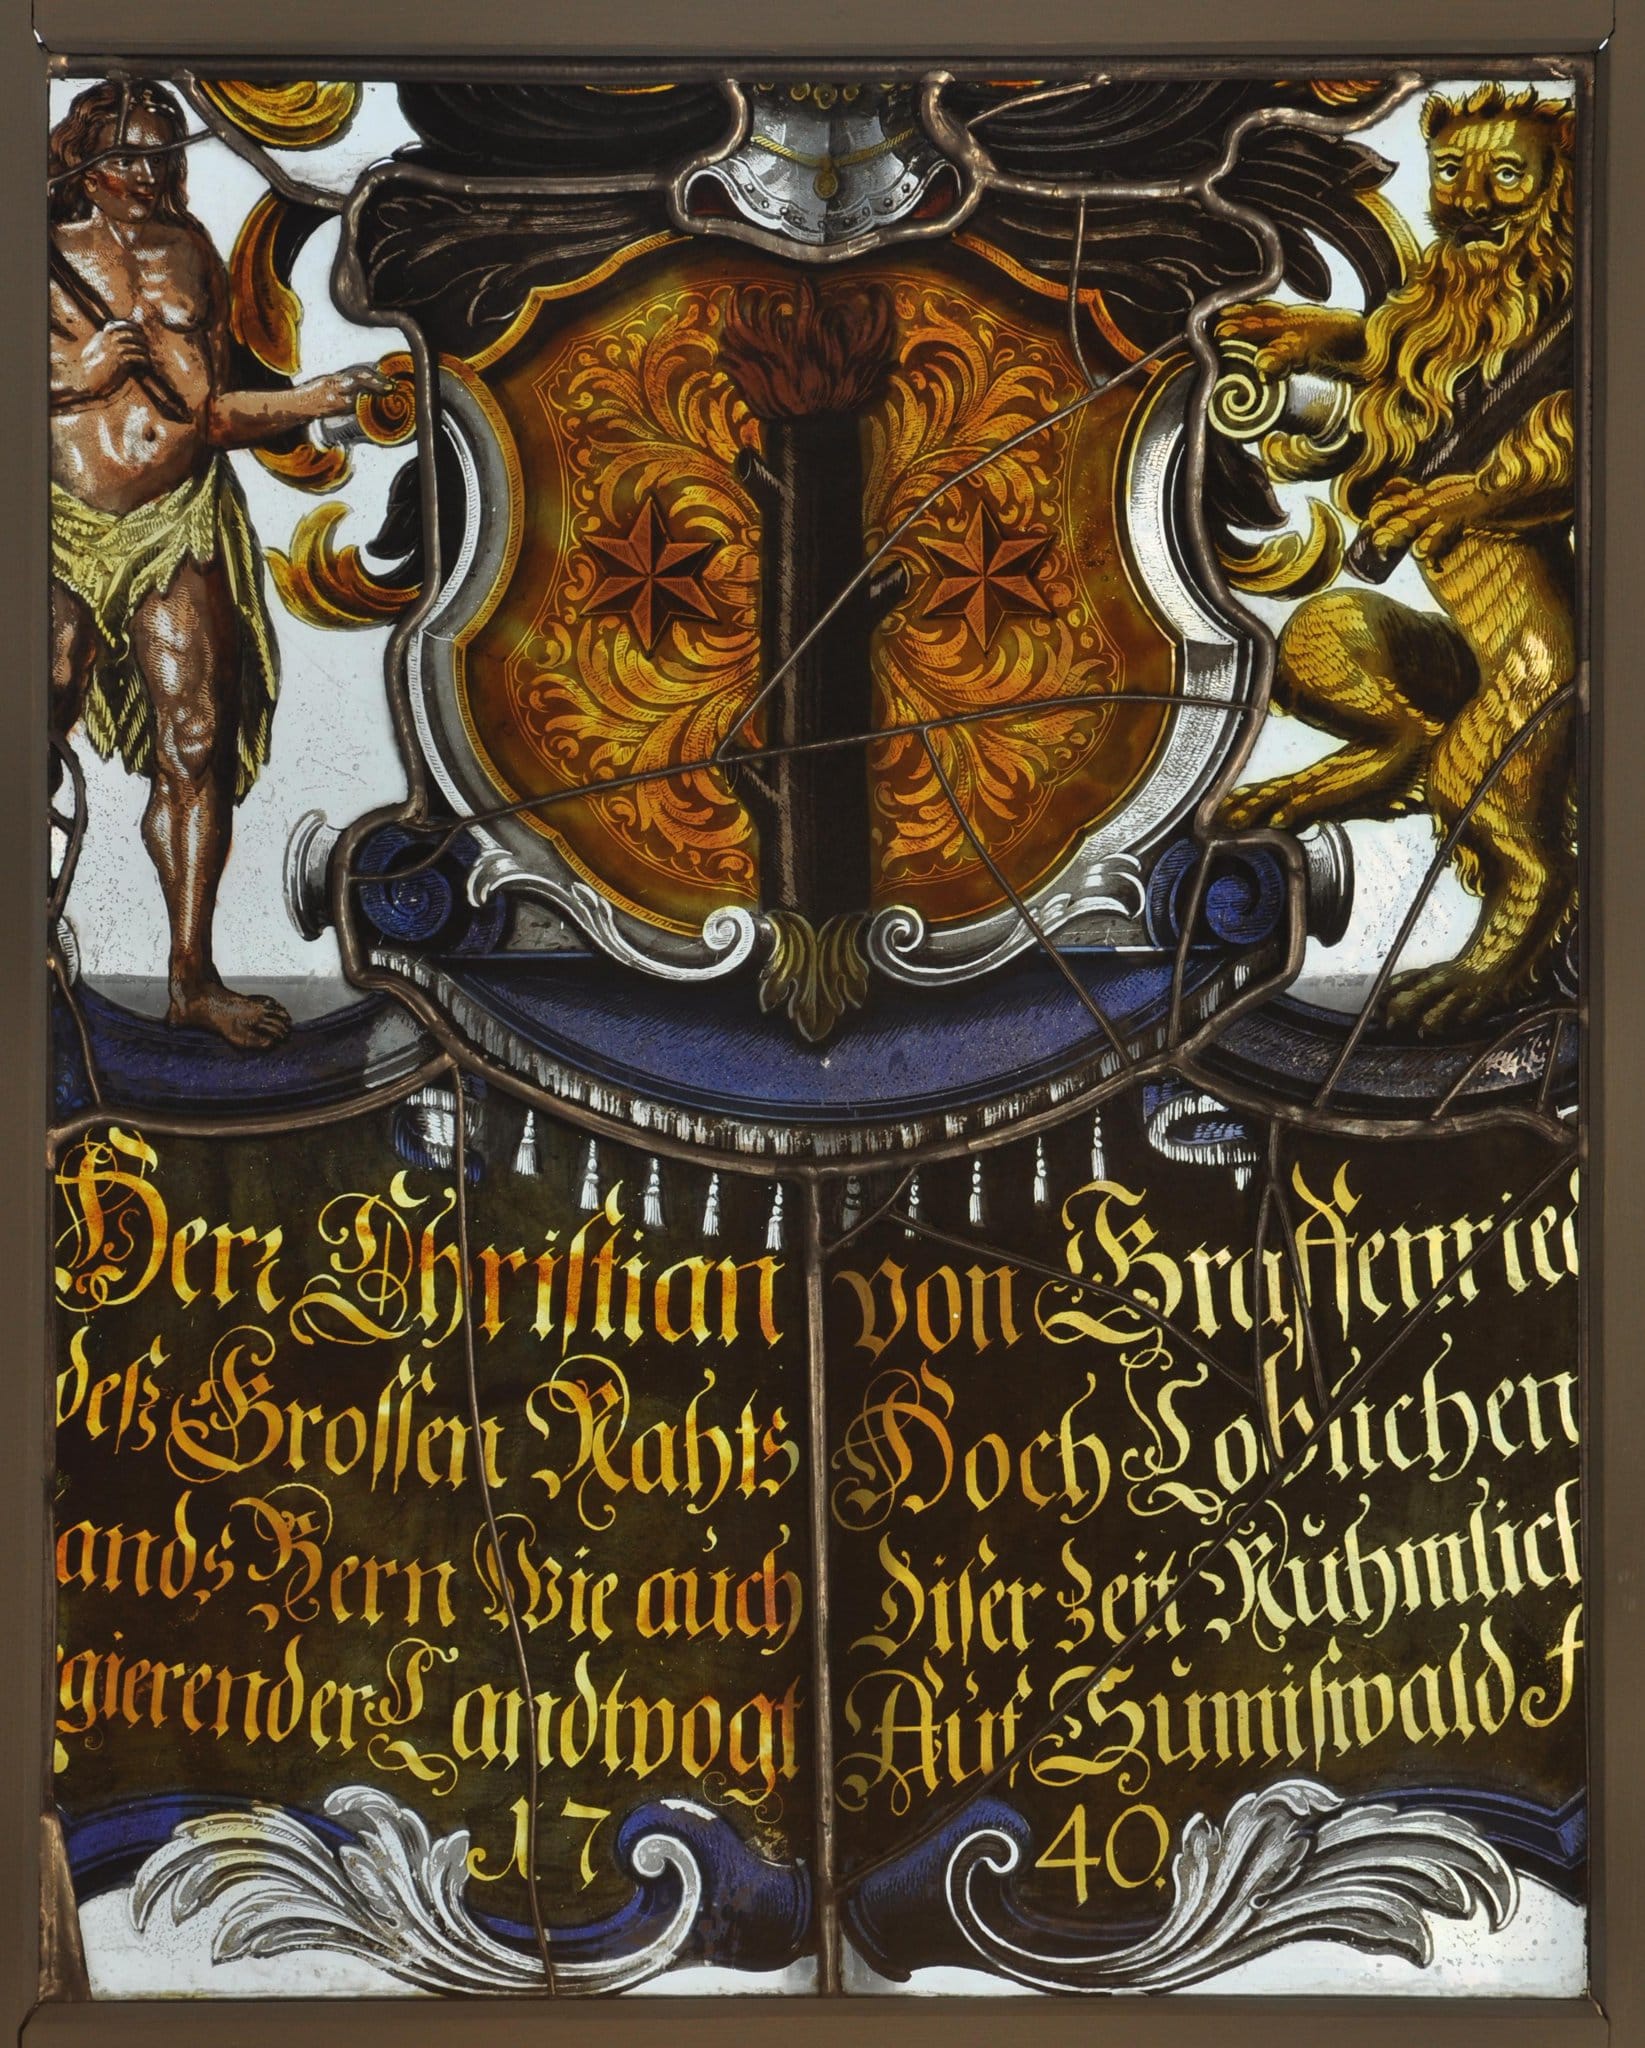 Herr Christian von Graffenried
deß Grossen Rahts Hoch Loblichen
ands Bern Wie auch diser zeit Rühmlich
gierender Landtvogt Auf Sumißwald
1740.